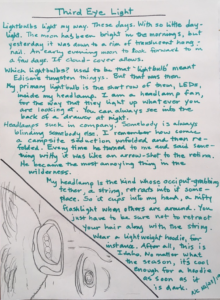 Third Eye Light
Lightbulbs light my way. These days. With so little day-
light. The moon has been bright in the mornings, but
yesterday it was down to a rim of translucent hang-
nail. An early evening moon to look forward to in
a few days. If cloud-cover allows.
Which lightbulbs? Used to be that "lightbulb" meant
Edison's tungsten things. But that was then.
My primary lightbulb is the short row of them, LEDs,
inside my headlamp. I am a headlamp fan,
for the way that they light up whatever you
are looking at. You can always see into the
back of a drawer at night.
Headlamps suck in company. Somebody is always
blinding somebody else. I remember how
a campsite seduction unfolded, and then re-
folded. Every time he turned to me and said some-
thing witty it was like an arrow-shot to the retina.
He became the most annoying thing in the
wilderness.
My headlamp is the kind whose occiput-grabbing
tether, a string, retracts into its some-
place. So it cups into my hand, a nifty
flashlight when others are around. You
just have to be sure not to retract
your hair along with the string.
Wear a lightweight hoodie, for
instance. After all, this is
Idaho. No matter what
the season, it's cool
enough for a hoodie
as soon as it
is dark.